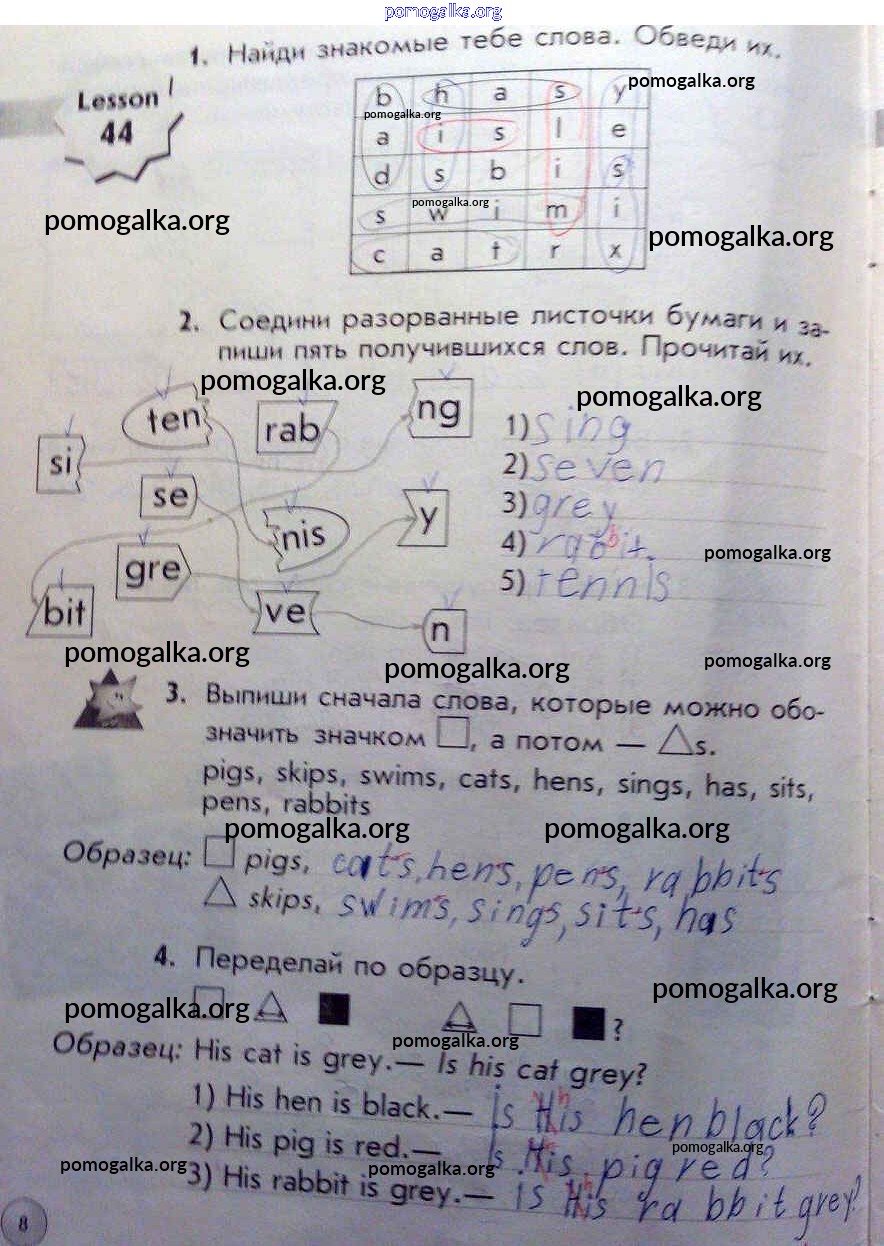 pomogalka.org
1. Найди знакомые тебе слова. Обведи их.
Lesson
44
b h a s y
pomogalka.org
pomogalka.org
a i s l e
d s b i s
pomogalka.org
s w i m i
pomogalka.org
pomogalka.org
c a t r x
2. Соедини разорванные листочки бумаги и за-
пиши пять получившихся слов. Прочитай их.
pomogalka.org
pomogalka.org
ten rab ng
si se
nis y
gre
bit ve n
1) sing
2) seven
3) grey
4) rabbit.
5) tennis
pomogalka.org
pomogalka.org
pomogalka.org
pomogalka.org
3. Выпиши сначала слова, которые можно обо-
значить значком □, а потом — △s.
pigs, skips, swims, cats, hens, sings, has, sits,
pens, rabbits
pomogalka.org
pomogalka.org
Образец: □ pigs, cats, hens, pens, rabbits
△ skips, swims, sings, sits, has
4. Переделай по образцу.
pomogalka.org
pomogalka.org
?
pomogalka.org
Образец: His cat is grey.— Is his cat grey?
1) His hen is black.— is His hen black?
2) His pig is red.— Is His pig red?
pomogalka.org
pomogalka.org
pomogalka.org
3) His rabbit is grey.— IS His rabbit grey?
8